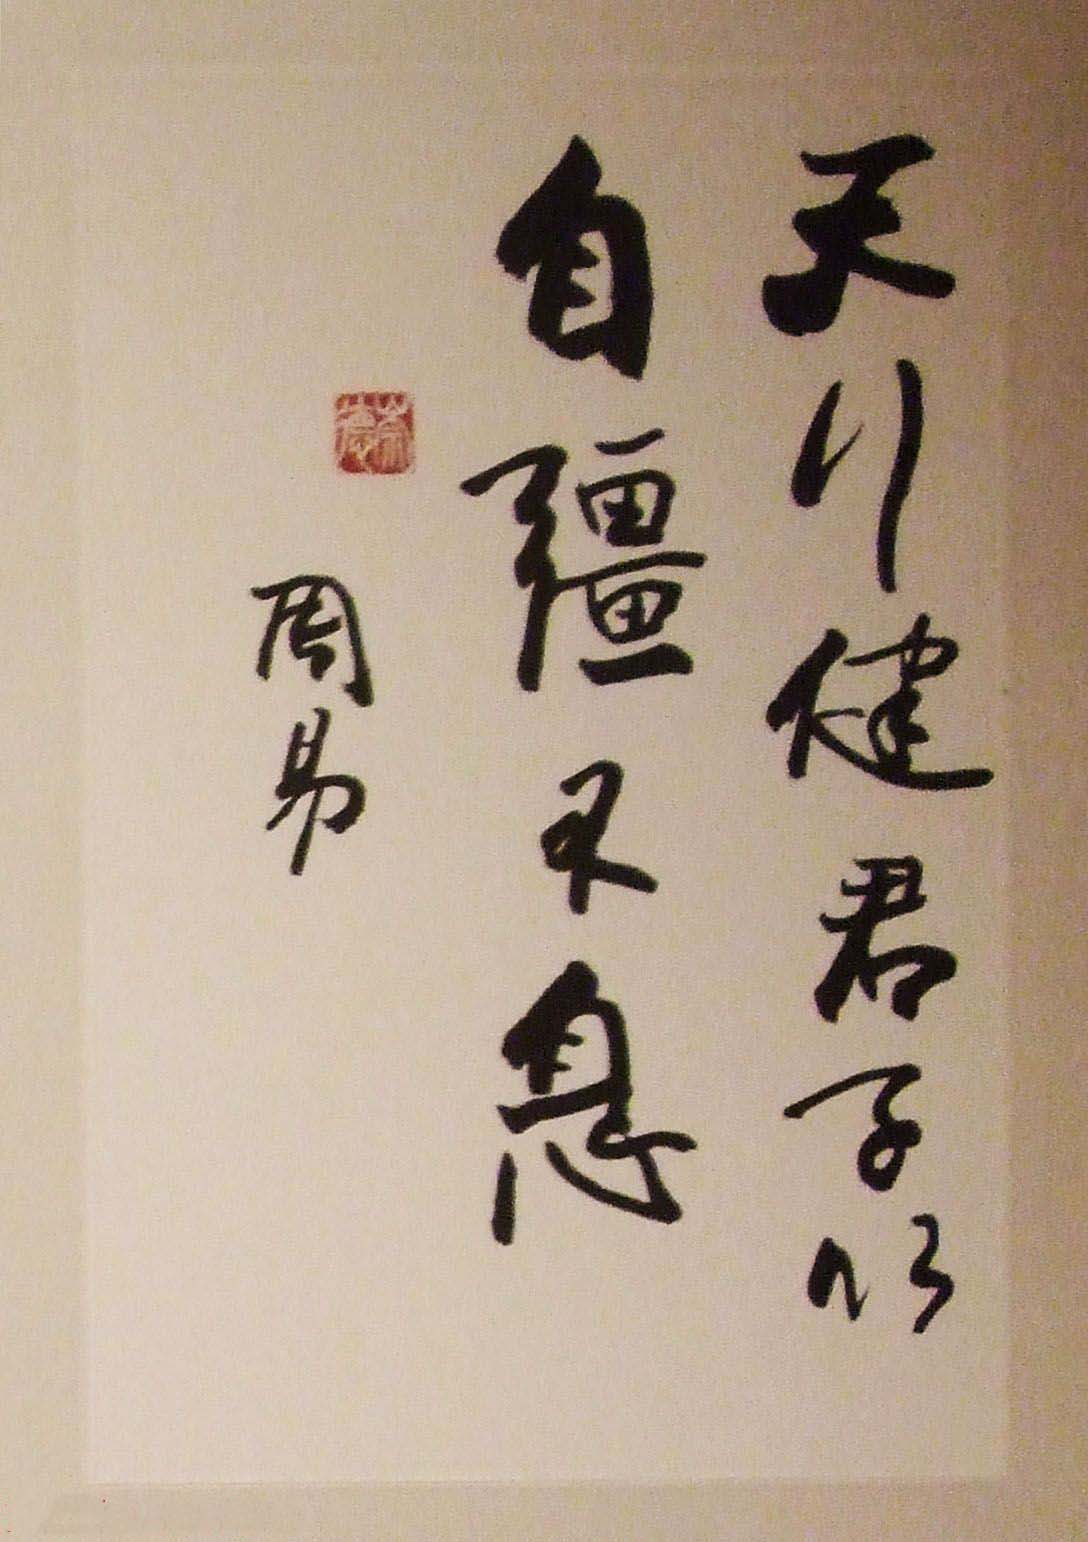 天行健君子以
自疆不息
周易